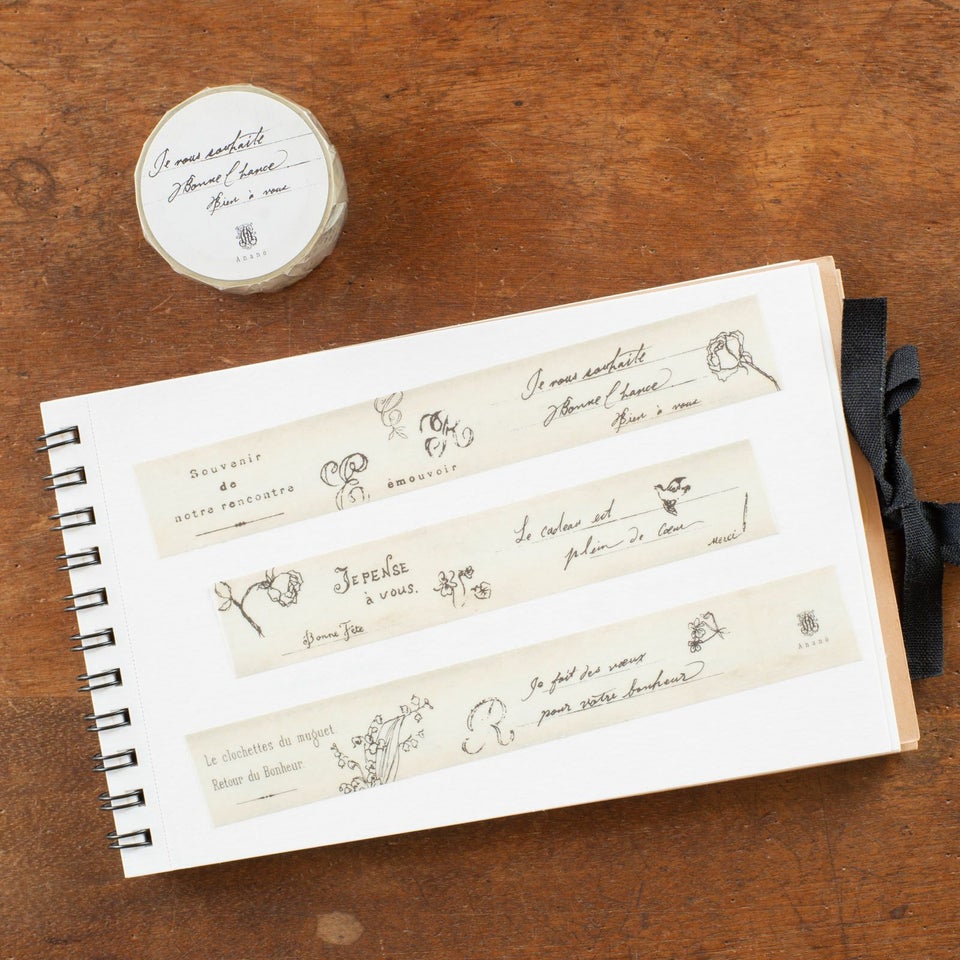 Je vous souhaite
Bonne Chance
Bien à vous
Anane
Souvenir
de
notre rencontre
émouvoir
Je vous souhaite
Bonne Chance
Bien à vous
JE PENSE
à vous.
Bonne Fête
Le cadeau est
plein de cœur
Merci!
Le clochettes du muguet
Retour du Bonheur.
R
Je fait des vœux
pour vôtre bonheur
Anane